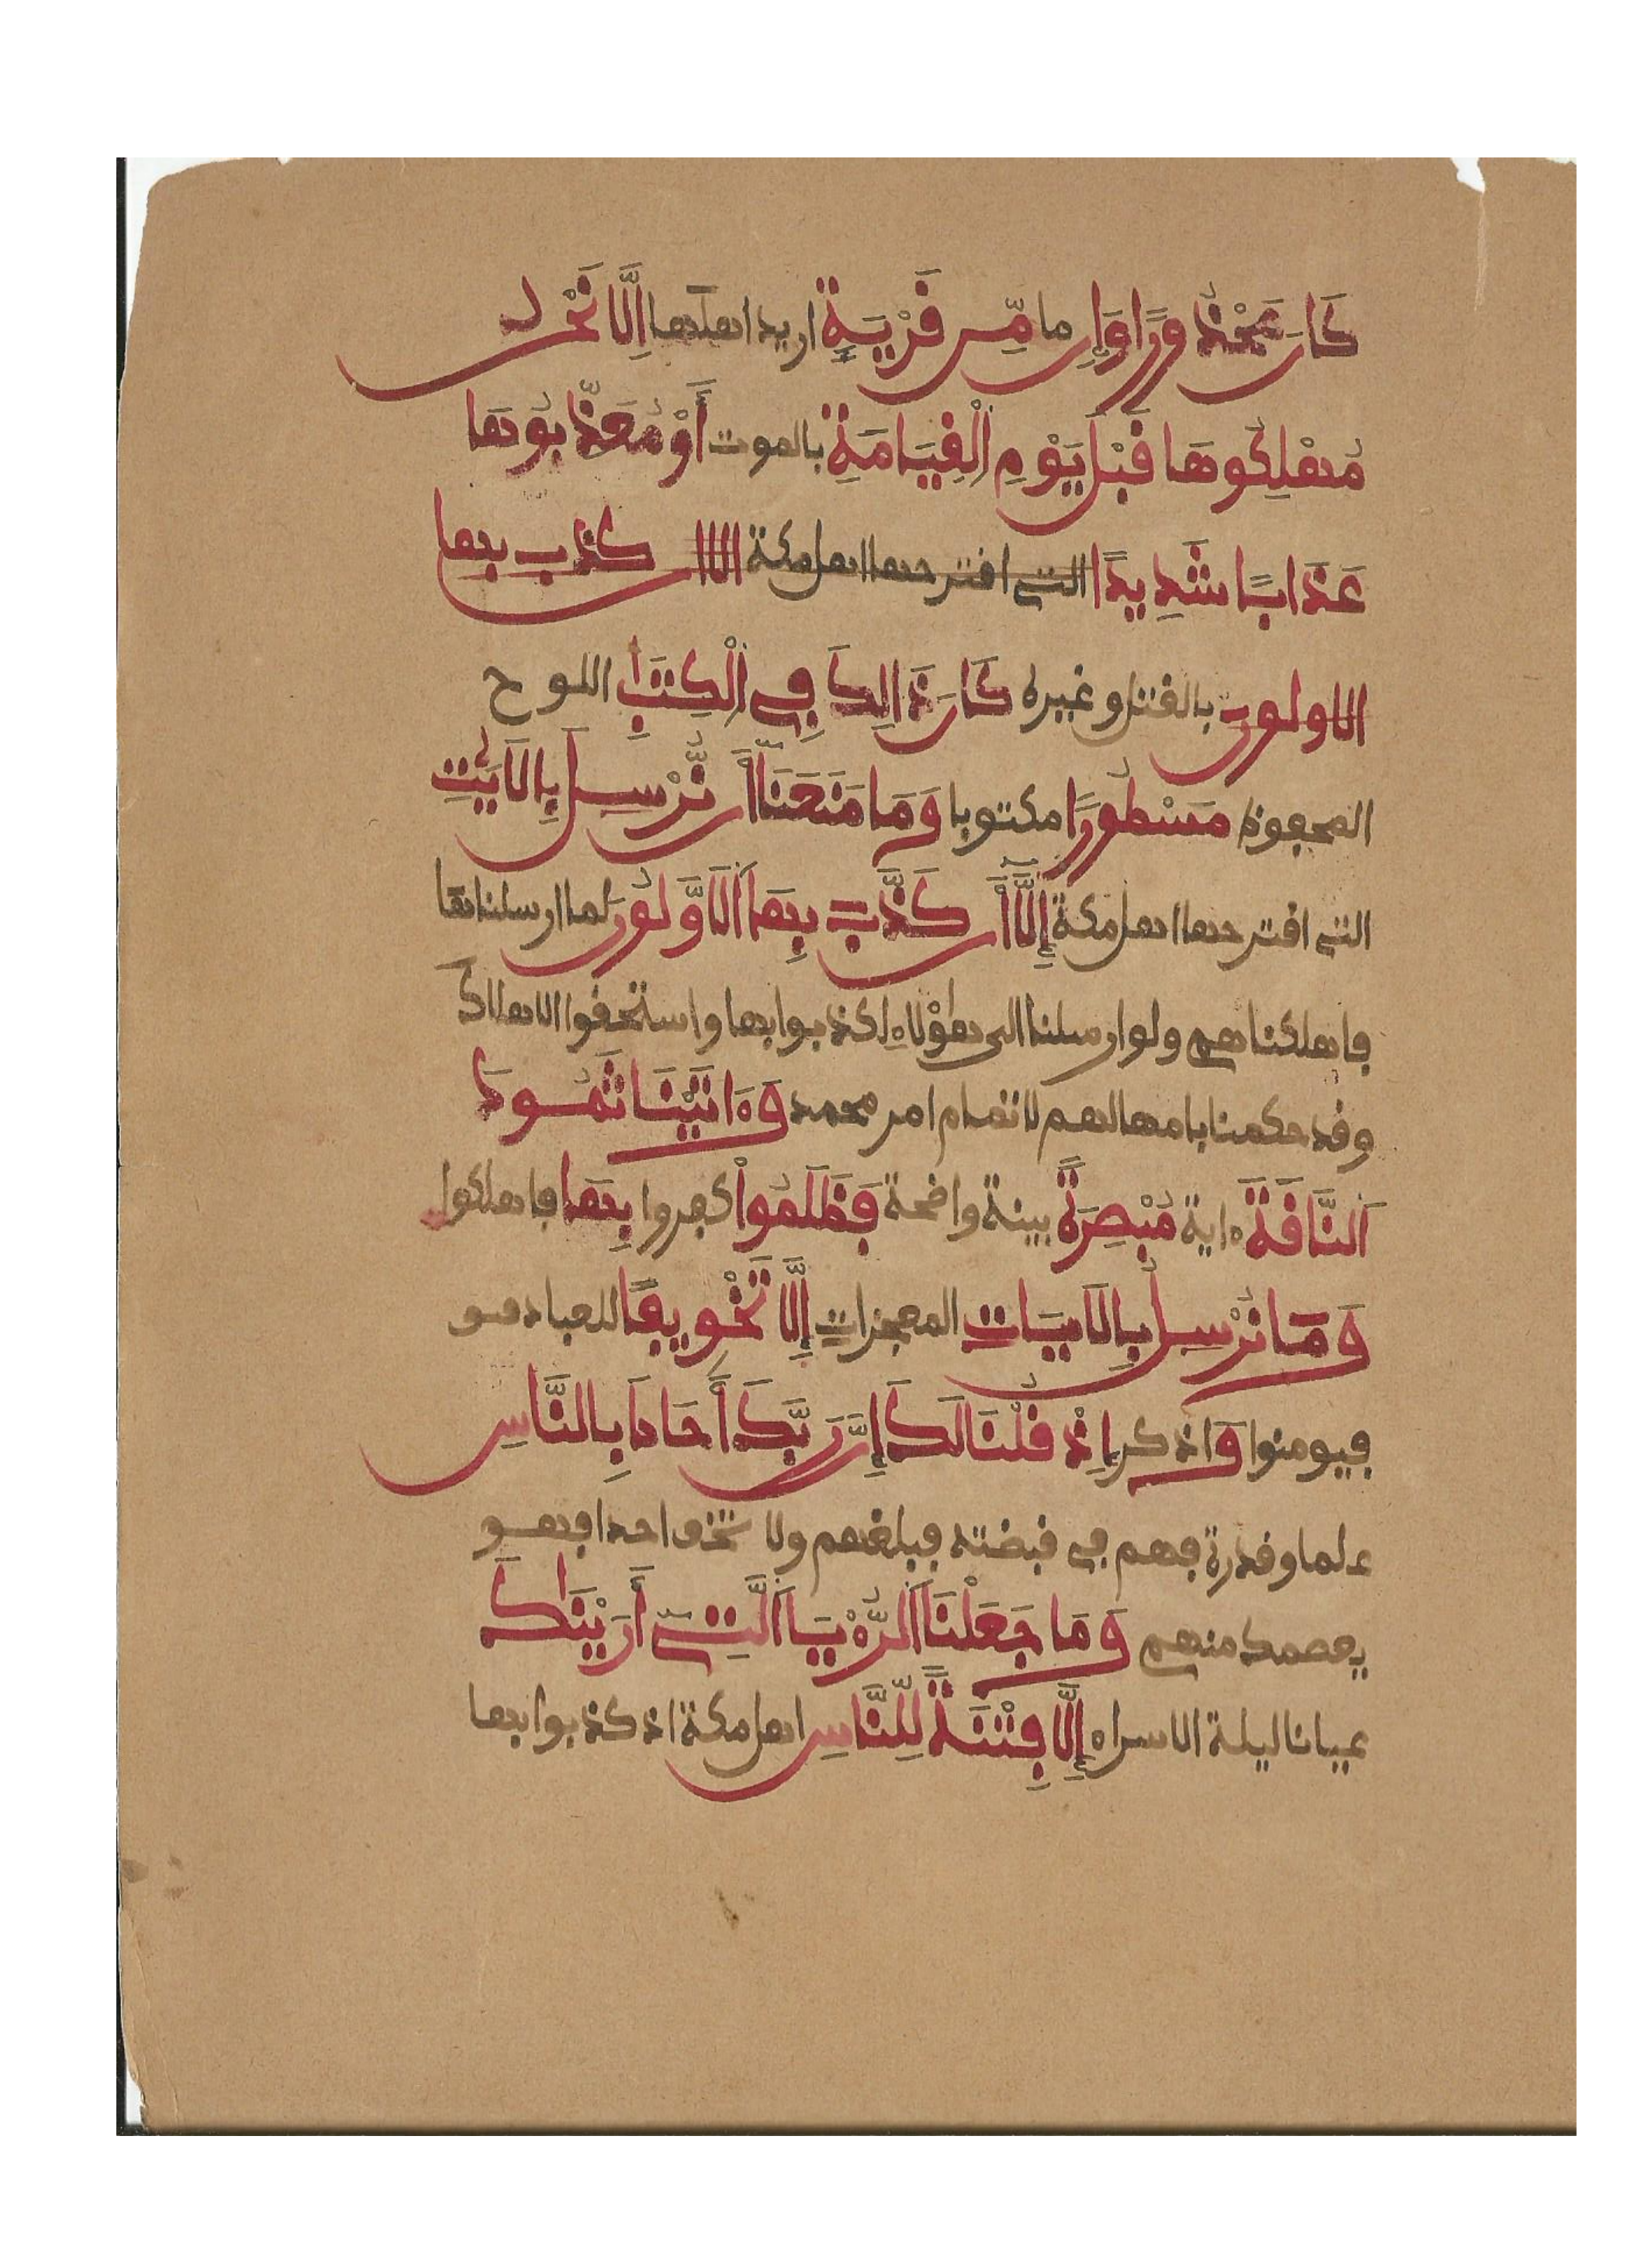 كَانَ مَحْذُورًا وَإِن ما مِّن قَرْيَةٍ اريد اهلها إِلَّا نَحْنُ
مُهْلِكُوهَا قَبْلَ يَوْمِ اِ۬لْقِيَامَةِ بالموت أَوْ مُعَذِّبُوهَا
عَذَابًا شَدِيدًا التي اقترحها اهل مكة الا ان كذب بها
الاولون بالقتل وغيره كَانَ ذَالِكَ فِي اِ۬لْكِتَٰبِ اللوح
المحفوظ مَسْطُورًا مكتوبا وَمَا مَنَعَنَا أَن نُّرْسِلَ بِالَايَٰتِ
التي اقترحها اهل مكة إِلَّا أَن كَذَّبَ بِهَا اَ۬لَاوَّلُونَ لما ارسلناها
فاهلكناهم ولو ارسلنا الى هؤلاء لكذبوا بها واستحقوا الاهلاك
وقد حكمنا بامهالهم لاتمام امر محمد وَءَاتَيْنَا ثَمُودَ
اَ۬لنَّاقَةَ ءاية مُبْصِرَةً بينة واضحة فَظَلَمُواْ كفروا بِهَا فاهلكوا
وَمَا نُرْسِلُ بِالَايَاتِ المعجزات إِلَّا تَخْوِيفًا للعباد
فيومنوا وَاذكر إِذْ قُلْنَا لَكَ إِنَّ رَبَّكَ أَحَاطَ بِالنَّاسِ
علما وقدرة فهم في قبضته فبلغهم ولا تخف احدا فهو
يعصمك منهم وَمَا جَعَلْنَا اَ۬لرُّءْيَا اَ۬لتِي أَرَيْنَٰكَ
عيانا ليلة الاسراء إِلَّا فِتْنَةً لِّلنَّاسِ اهل مكة اذ كذبوا بها